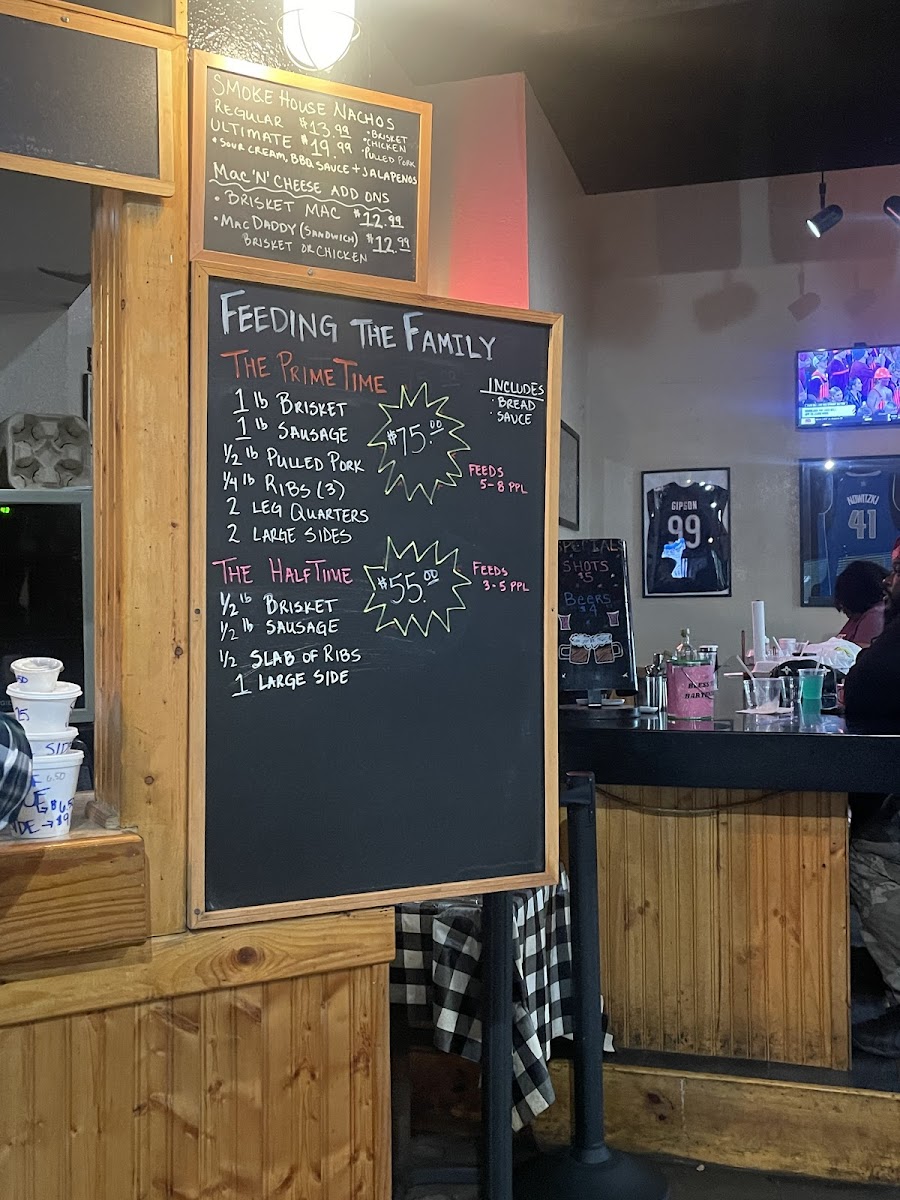 SMOKE HOUSE NACHOS
REGULAR $13.99
ULTIMATE $19.99
• BRISKET
• CHICKEN
• PULLED PORK
• SOUR CREAM, BBQ SAUCE + JALAPENOS
MAC 'N' CHEESE ADD ONS
• BRISKET MAC $12.99
• MAC DADDY (SANDWICH) $12.99
BRISKET OR CHICKEN
FEEDING THE FAMILY
THE PRIME TIME
1 lb BRISKET
1 lb SAUSAGE
1/2 lb PULLED PORK
1/4 lb RIBS (3)
2 LEG QUARTERS
2 LARGE SIDES
$75.00
INCLUDES
• BREAD
• SAUCE
FEEDS
5-8 PPL
THE HALFTIME
1/2 lb BRISKET
1/2 lb SAUSAGE
1/2 SLAB OF RIBS
1 LARGE SIDE
$55.00
FEEDS
3-5 PPL
SPECIAL
SHOTS
$5
BEERS
$4
GIPSON
99
NOWITZKI
41
BLESS